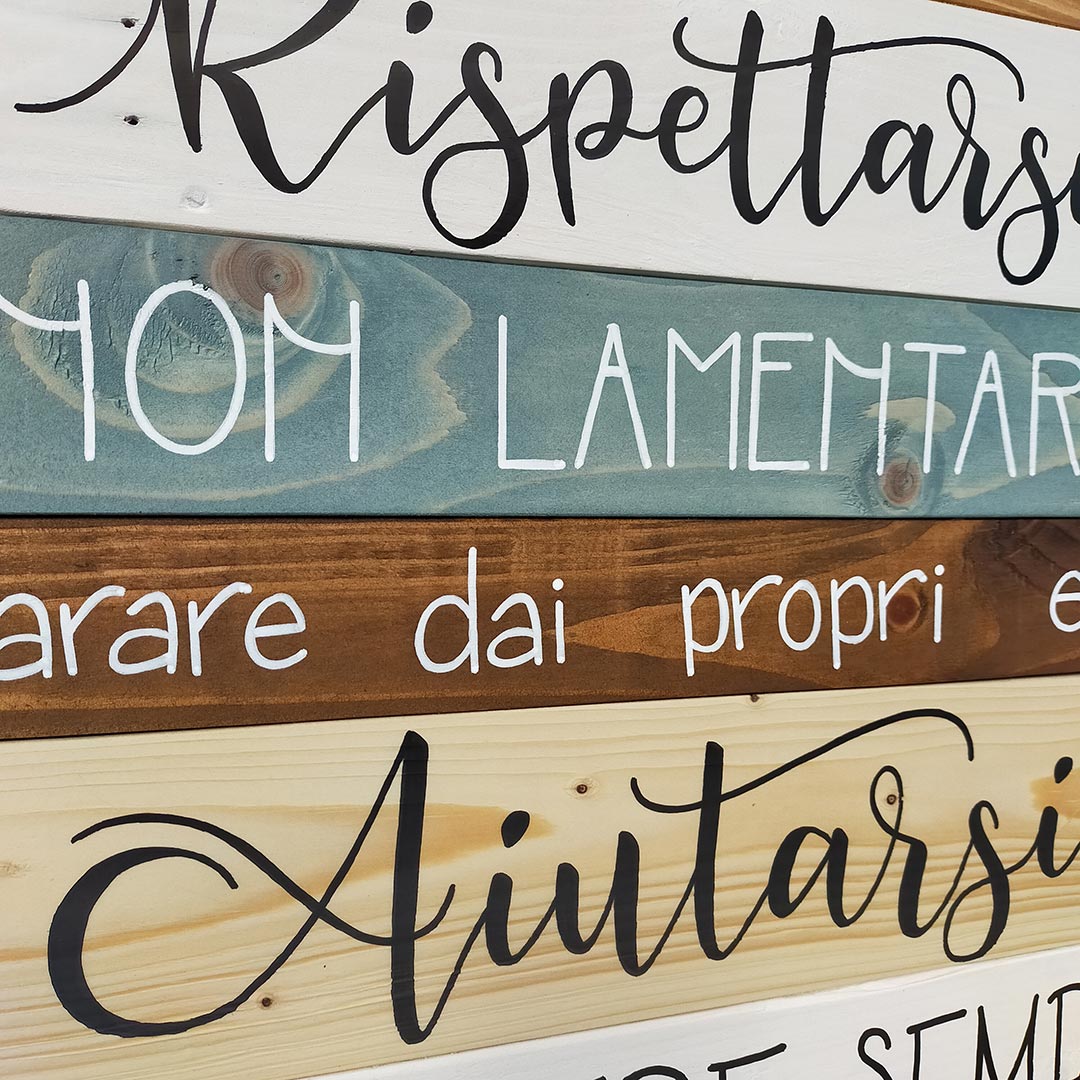 Rispettarsi
NON LAMENTAR
arare dai propri e
Aiutarsi
RE SEMP